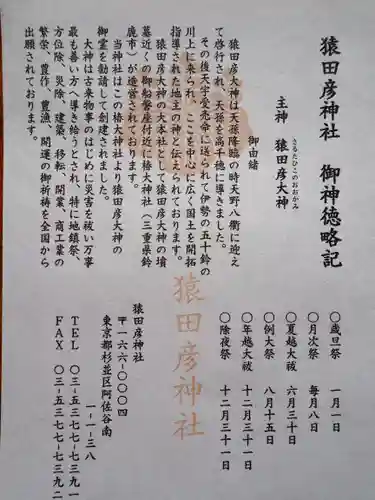 猿田彦神社　御神徳略記
主神　猿田彦大神
さるたひこのおおかみ
御由緒
猿田彦大神は天孫降臨の時天野八衢に迎え
て啓行され、天孫を高千穂に導きました。
その後天宇受売命に送られて伊勢の五十鈴の
川上に来られ、ここを中心に広く国土を開拓
指導された地主の神と伝えられております。
猿田彦大神の大本社として猿田彦大神の墳
墓近くの御船磐座付近に椿大神社（三重県鈴
鹿市）が造営されております。
当神社はこの椿大神社より猿田彦大神の
御霊を勧請して創建されました。
大神は古来物事のはじめに災害を祓い万事
最も善い方へ導き給うとされ、特に地鎮祭、
方位除、災除、建築、移転、開業、商工業の
繁栄、豊作、豊漁、開運の御祈祷を全国から
出願されております。
〇歳旦祭　一月一日
〇月次祭　毎月八日
〇夏越大祓　六月三十日
〇例大祭　八月十五日
〇年越大祓　十二月三十一日
〇除夜祭　十二月三十一日
猿田彦神社
猿田彦神社
〒一六六-〇〇〇四
東京都杉並区阿佐谷南
一-一-三八
ＴＥＬ　〇三-五三七七-七三九一
ＦＡＸ　〇三-五三七七-七三九二